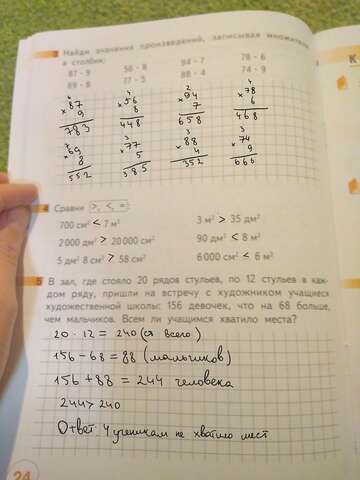 3 Найди значения произведений, записывая множители
в столбик:
87 · 9 56 · 8 94 · 7 78 · 6
69 · 8 77 · 5 88 · 4 74 · 9
6 4 2 4
×87 ×56 ×94 ×78
9 8 7 6
783 448 658 468
7 3 3 3
×69 ×77 ×88 ×74
8 5 4 9
552 385 352 666
4 Сравни >, <, =
700 см² < 7 м² 3 м² > 35 дм²
2 000 дм² > 20 000 см² 90 дм² < 8 м²
5 дм² 8 см² > 58 см² 6 000 см² < 6 м²
5 В зал, где стояло 20 рядов стульев, по 12 стульев в каж-
дом ряду, пришли на встречу с художником учащиеся
художественной школы: 156 девочек, что на 68 больше,
чем мальчиков. Всем ли учащимся хватило места?
20 · 12 = 240 (ст всего)
156 - 68 = 88 (мальчиков)
156 + 88 = 244 человека
244 > 240
Ответ 4 ученикам не хватило мест
24
К